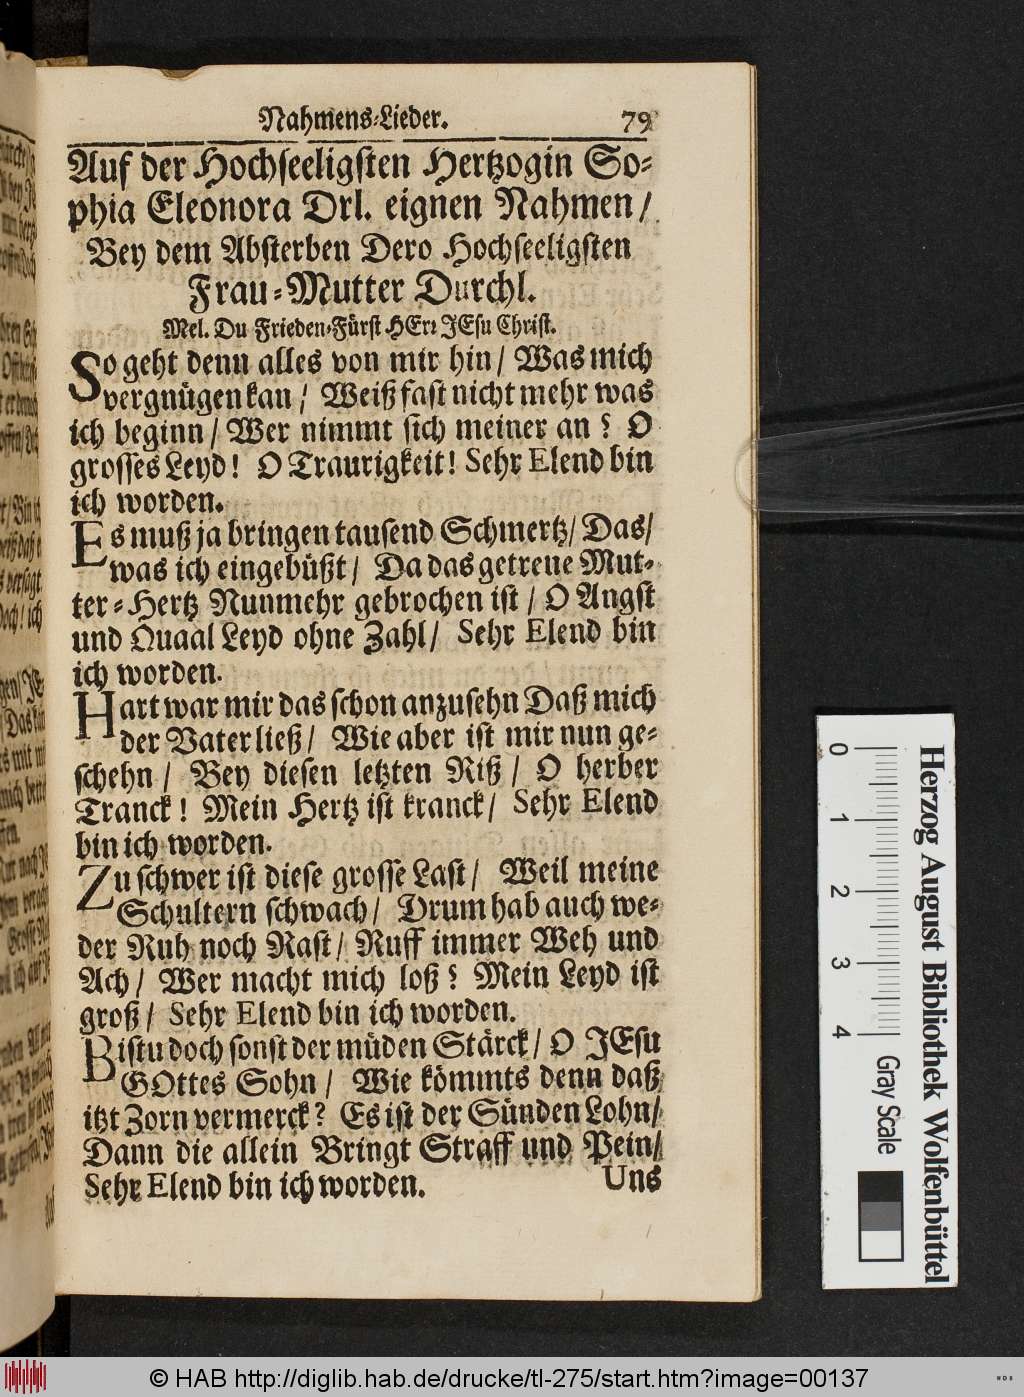 Nahmens-Lieder. 79
Auf der Hochseeligsten Hertzogin So-
phia Eleonora Drl. eignen Nahmen/
Bey dem Absterben Dero Hochseeligsten
Frau-Mutter Durchl.
Mel. Du Frieden-Fürst HErr JEsu Christ.
So geht denn alles von mir hin/ Was mich
vergnügen kan/ Weiß fast nicht mehr was
ich beginn/ Wer nimmt sich meiner an? O
grosses Leyd! O Traurigkeit! Sehr Elend bin
ich worden.
Es muß ja bringen tausend Schmertz/ Das/
was ich eingebüßt/ Da das getreue Mut-
ter-Hertz Nunmehr gebrochen ist/ O Angst
und Quaal Leyd ohne Zahl/ Sehr Elend bin
ich worden.
Hart war mir das schon anzusehn Daß mich
der Vater ließ/ Wie aber ist mir nun ge-
schehn/ Bey diesen letzten Riß/ O herber
Tranck! Mein Hertz ist kranck/ Sehr Elend
bin ich worden.
Zu schwer ist diese grosse Last/ Weil meine
Schultern schwach/ Drum hab auch we-
der Ruh noch Rast/ Ruff immer Weh und
Ach/ Wer macht mich loß? Mein Leyd ist
groß/ Sehr Elend bin ich worden.
Bistu doch sonst der müden Stärck/ O JEsu
GOttes Sohn/ Wie kömmts denn daß
itzt Zorn vermerck? Es ist der Sünden Lohn/
Dann die allein Bringt Straff und Pein/
Sehr Elend bin ich worden. Uns
0 1 2 3 4
Herzog August Bibliothek Wolfenbüttel
Gray Scale
© HAB http://diglib.hab.de/drucke/tl-275/start.htm?image=00137